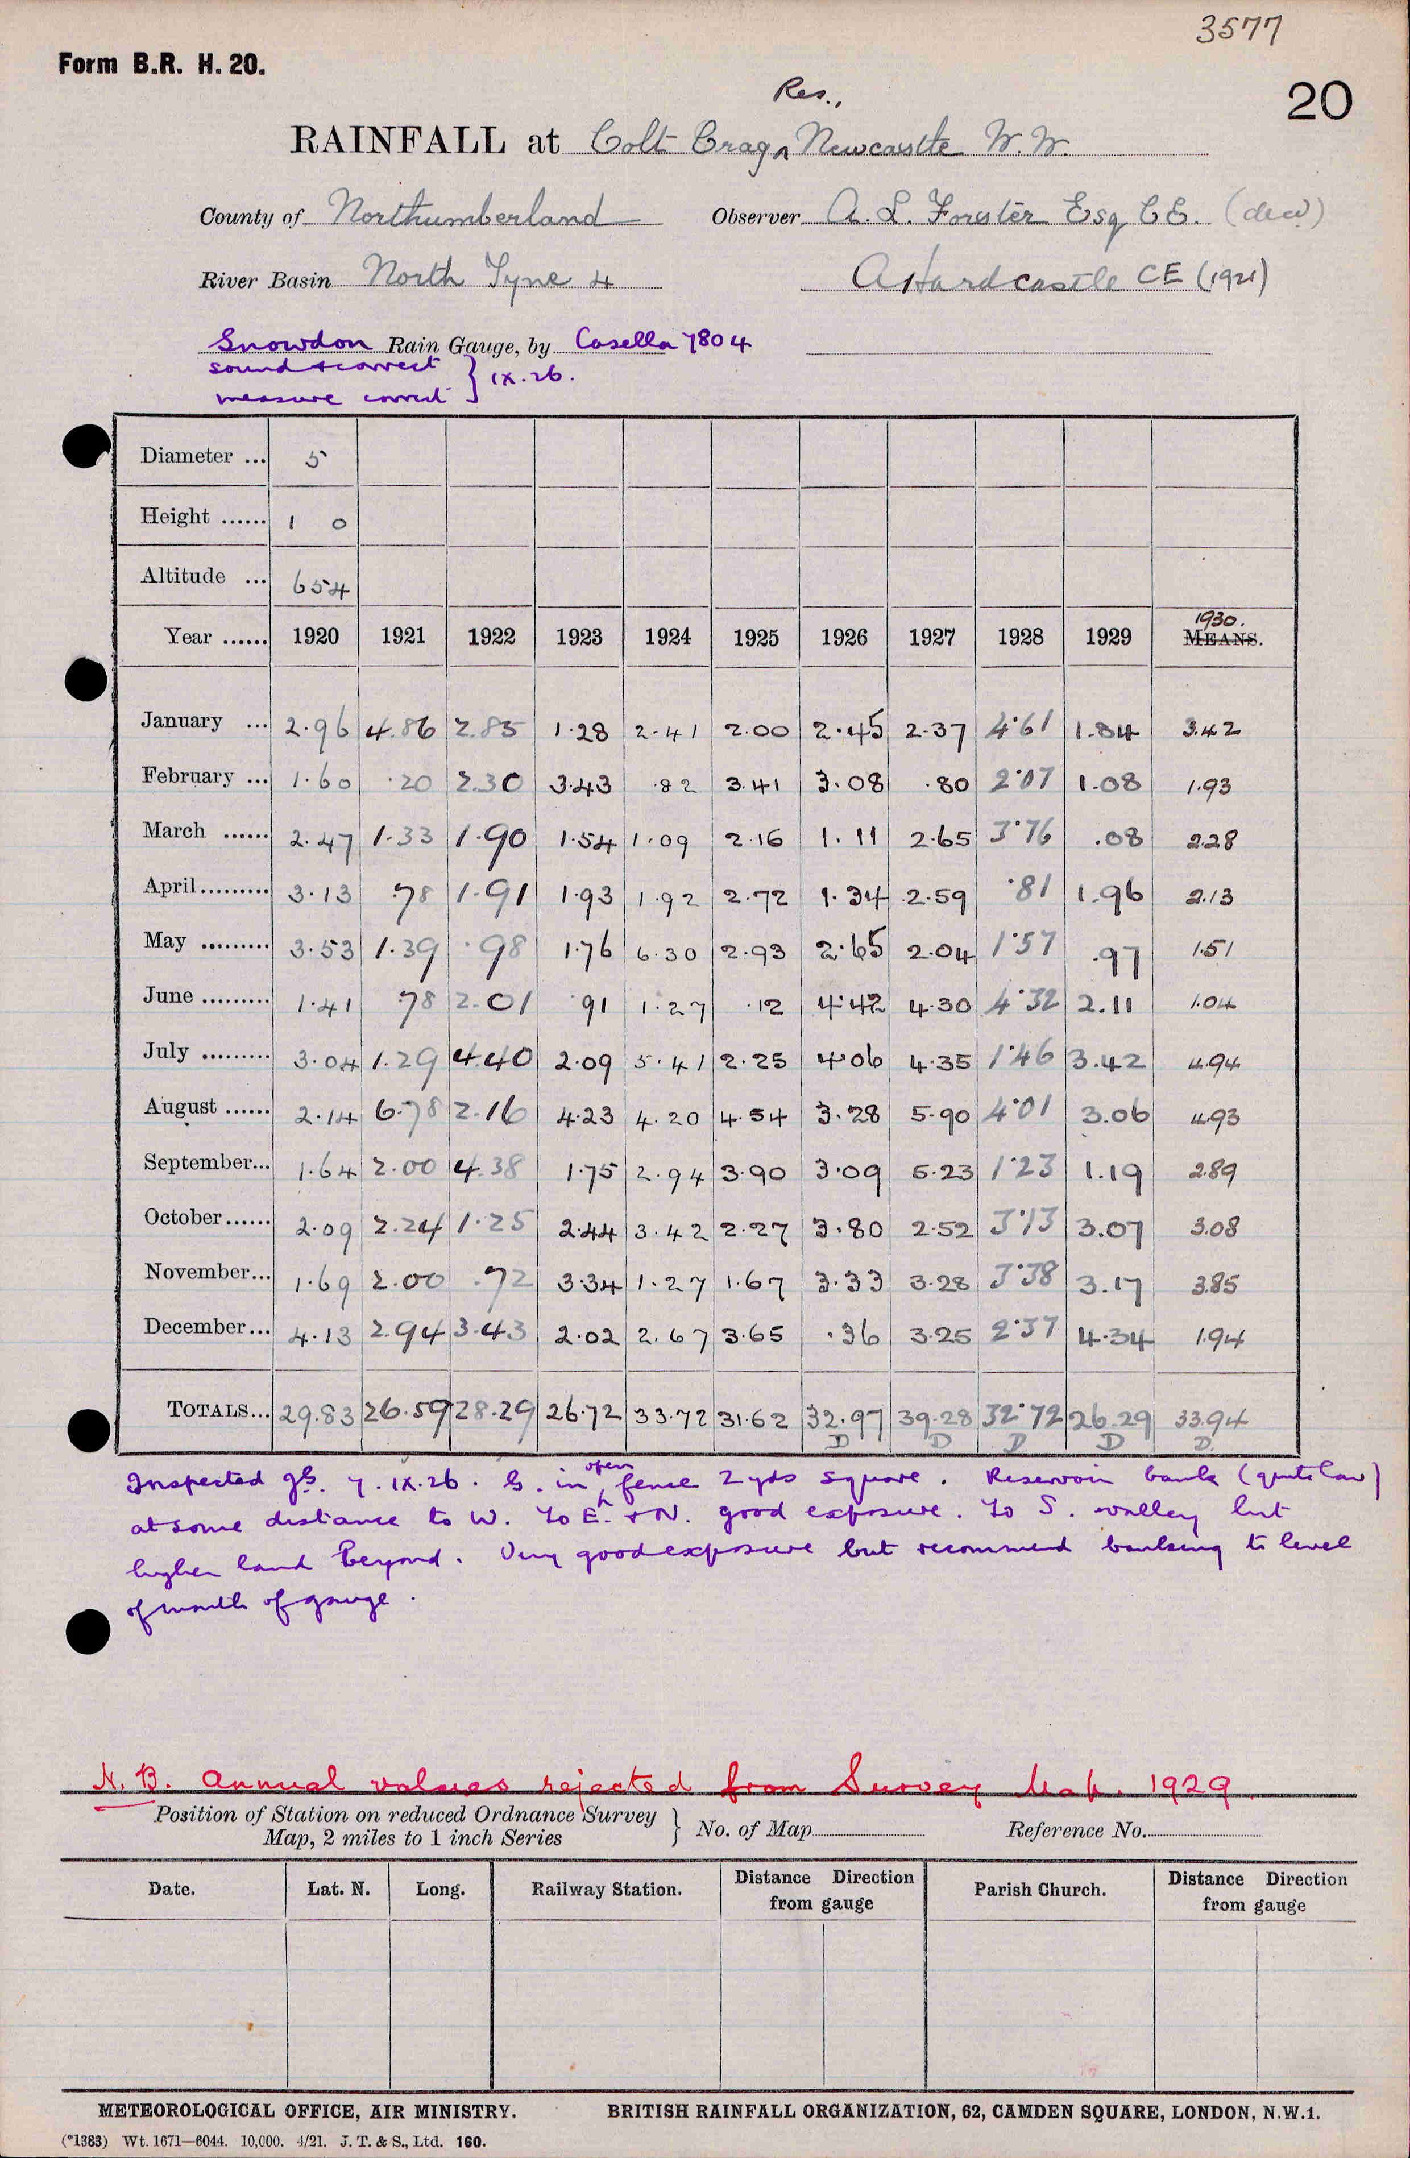 3577
Form B.R. H. 20.
20
Res.,
RAINFALL at Colt Crag Newcastle W.W.
County of Northumberland Observer A. L. Forster Esq C.E. (decd)
River Basin North Tyne 4 A Hardcastle CE (1921)
Snowdon Rain Gauge, by Casella 7804
sound & correct } IX.26.
measure correct
Diameter ... 5
Height ...... 1 0
Altitude ... 654
1930.
Year ...... 1920 1921 1922 1923 1924 1925 1926 1927 1928 1929 MEANS.
January ... 2.96 4.86 2.85 1.28 2.41 2.00 2.45 2.37 4.61 1.84 3.42
February ... 1.60 .20 2.30 3.43 .82 3.41 3.08 .80 2.07 1.08 1.93
March ...... 2.47 1.33 1.90 1.54 1.09 2.16 1.11 2.65 3.76 .08 2.28
April......... 3.13 .78 1.91 1.93 1.92 2.72 1.34 2.59 .81 1.96 2.13
May ......... 3.53 1.39 .98 1.76 6.30 2.93 2.65 2.04 1.57 .97 1.51
June ......... 1.41 .78 2.01 .91 1.27 .12 4.42 4.30 4.32 2.11 1.04
July ......... 3.04 1.29 4.40 2.09 5.41 2.25 4.06 4.35 1.46 3.42 4.94
August ...... 2.14 6.78 2.16 4.23 4.20 4.54 3.28 5.90 4.01 3.06 4.93
September... 1.64 2.00 4.38 1.75 2.94 3.90 3.09 5.23 1.23 1.19 2.89
October...... 2.09 2.24 1.25 2.44 3.42 2.27 3.80 2.52 3.13 3.07 3.08
November... 1.69 2.00 .72 3.34 1.27 1.67 3.33 3.28 3.38 3.17 3.85
December... 4.13 2.94 3.43 2.02 2.67 3.65 .36 3.25 2.37 4.34 1.94
TOTALS... 29.83 26.59 28.29 26.72 33.72 31.62 32.97 39.28 32.72 26.29 33.94
D D D D D
open
Inspected 7.IX.26. G. in fence 2 yds square. Reservoir bank (quite low)
at some distance to W. To E. & N. good exposure. To S. valley but
higher land beyond. Very good exposure but recommend banking to level
of mouth of gauge.
N.B. Annual values rejected from Survey Map. 1929.
Position of Station on reduced Ordnance Survey } No. of Map Reference No.
Map, 2 miles to 1 inch Series
Date. Lat. N. Long. Railway Station. Distance Direction from gauge Parish Church. Distance Direction from gauge
METEOROLOGICAL OFFICE, AIR MINISTRY. BRITISH RAINFALL ORGANIZATION, 62, CAMDEN SQUARE, LONDON, N.W.1.
(*1383) Wt. 1671—6044. 10,000. 4/21. J. T. & S., Ltd. 160.